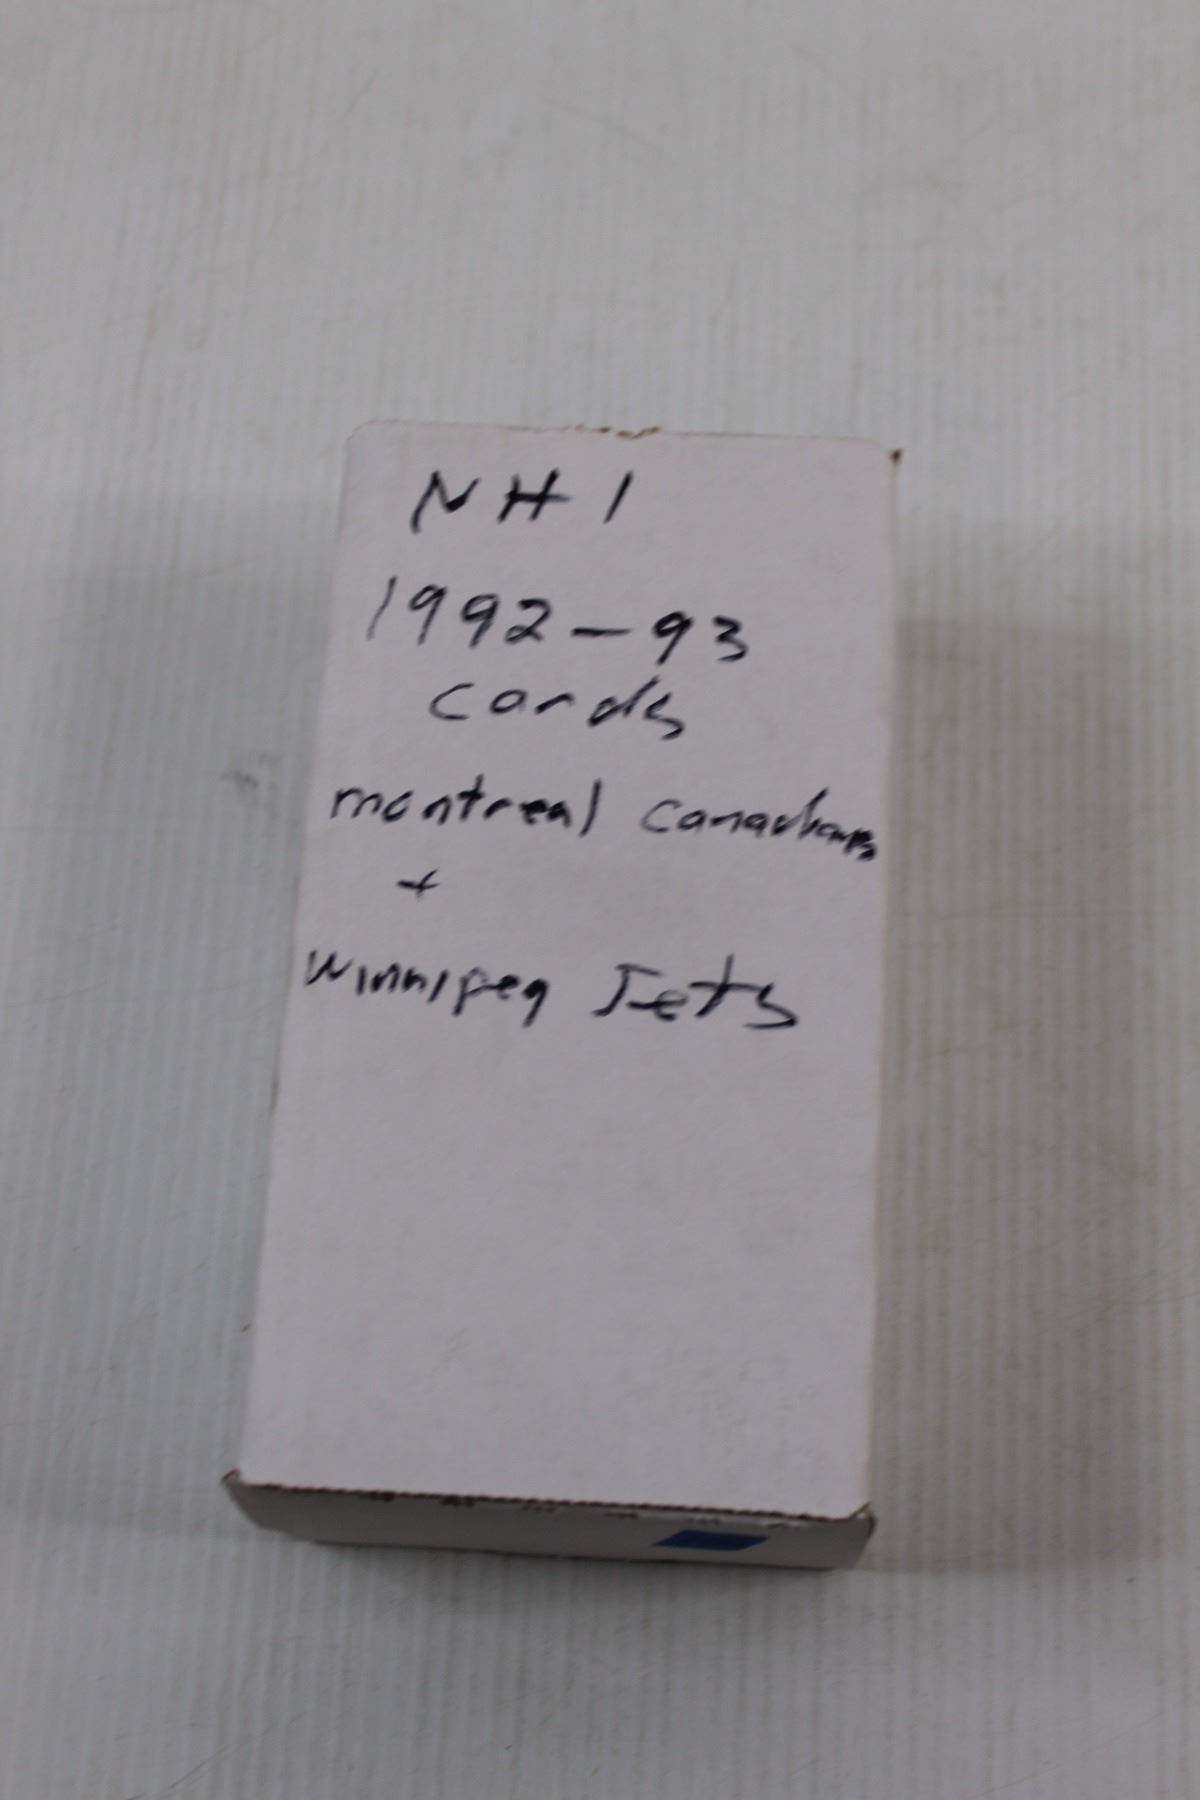 NHl
1992-93
cards
montreal canadians
+
winnipeg Jets